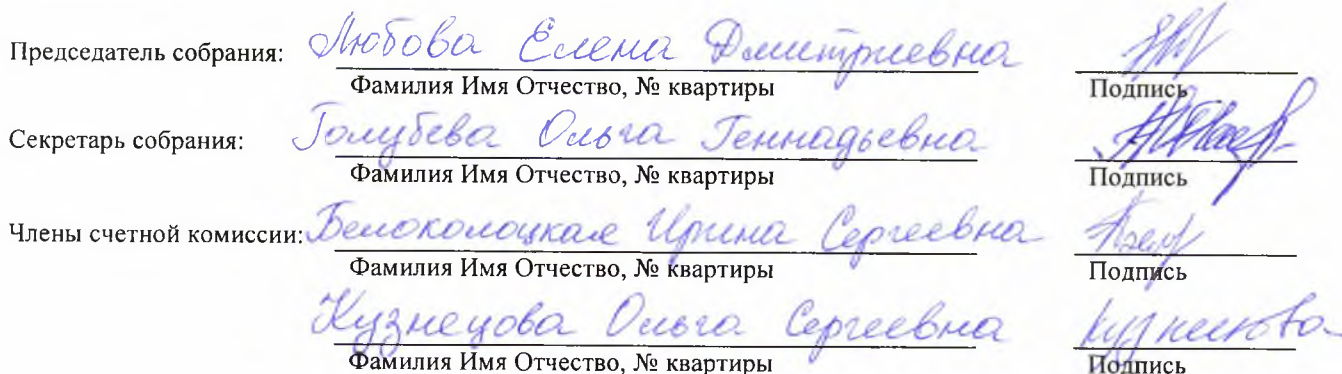 Председатель собрания: Любова Елена Дмитриевна
Фамилия Имя Отчество, № квартиры Подпись
Секретарь собрания: Голубева Ольга Геннадьевна
Фамилия Имя Отчество, № квартиры Подпись
Члены счетной комиссии: Белоколоцкая Ирина Сергеевна
Фамилия Имя Отчество, № квартиры Подпись
Кузнецова Ольга Сергеевна
Фамилия Имя Отчество, № квартиры Подпись